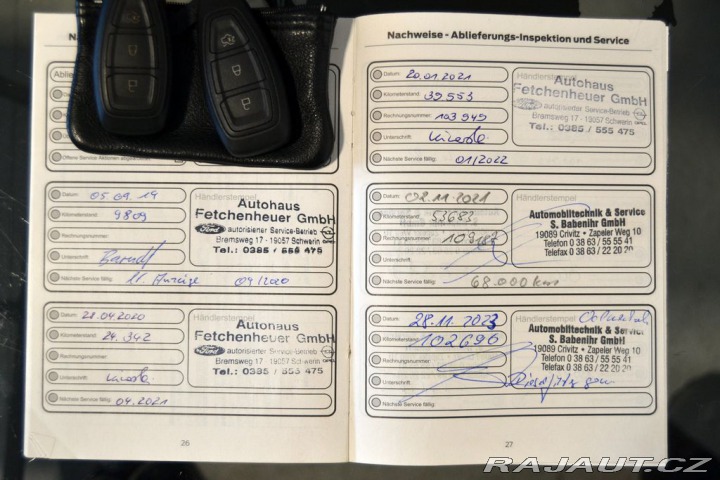 Nachweise - Ablieferungs-Inspektion und Service
Datum: 05.09.19
Kilometerstand: 9809
Rechnungsnummer:
Unterschrift:
Nächste Service fällig: 09/2020
Händlerstempel
Autohaus
Fetchenheuer GmbH
Ford autorisierter Service-Betrieb
Bremsweg 17 - 19057 Schwerin
Tel.: 0385 / 555 475
Datum: 28.04.2020
Kilometerstand: 24.342
Rechnungsnummer:
Unterschrift:
Nächste Service fällig: 04.2021
Händlerstempel
Autohaus
Fetchenheuer GmbH
Ford autorisierter Service-Betrieb
Bremsweg 17 - 19057 Schwerin
Tel.: 0385 / 555 475
26
Datum: 20.01.2021
Kilometerstand: 39553
Rechnungsnummer: 103949
Unterschrift:
Nächste Service fällig: 01/2022
Händlerstempel
Autohaus
Fetchenheuer GmbH
autorisierter Service-Betrieb
Bremsweg 17 - 19057 Schwerin
Tel.: 0385 / 555 475
Datum: 02.11.2021
Kilometerstand: 53683
Rechnungsnummer:
Unterschrift:
Nächste Service fällig: 68.000 km
Händlerstempel
Automobiltechnik & Service
S. Babenihr GmbH
19089 Crivitz • Zapeler Weg 10
Telefon 0 38 63 / 55 55 41
Telefax 0 38 63 / 22 20 20
Datum: 28.11.2023
Kilometerstand: 102696
Rechnungsnummer:
Unterschrift:
Nächste Service fällig:
Händlerstempel
Automobiltechnik & Service
S. Babenihr GmbH
19089 Crivitz • Zapeler Weg 10
Telefon 0 38 63 / 55 55 41
Telefax 0 38 63 / 22 20 20
27
RAJAUT.CZ